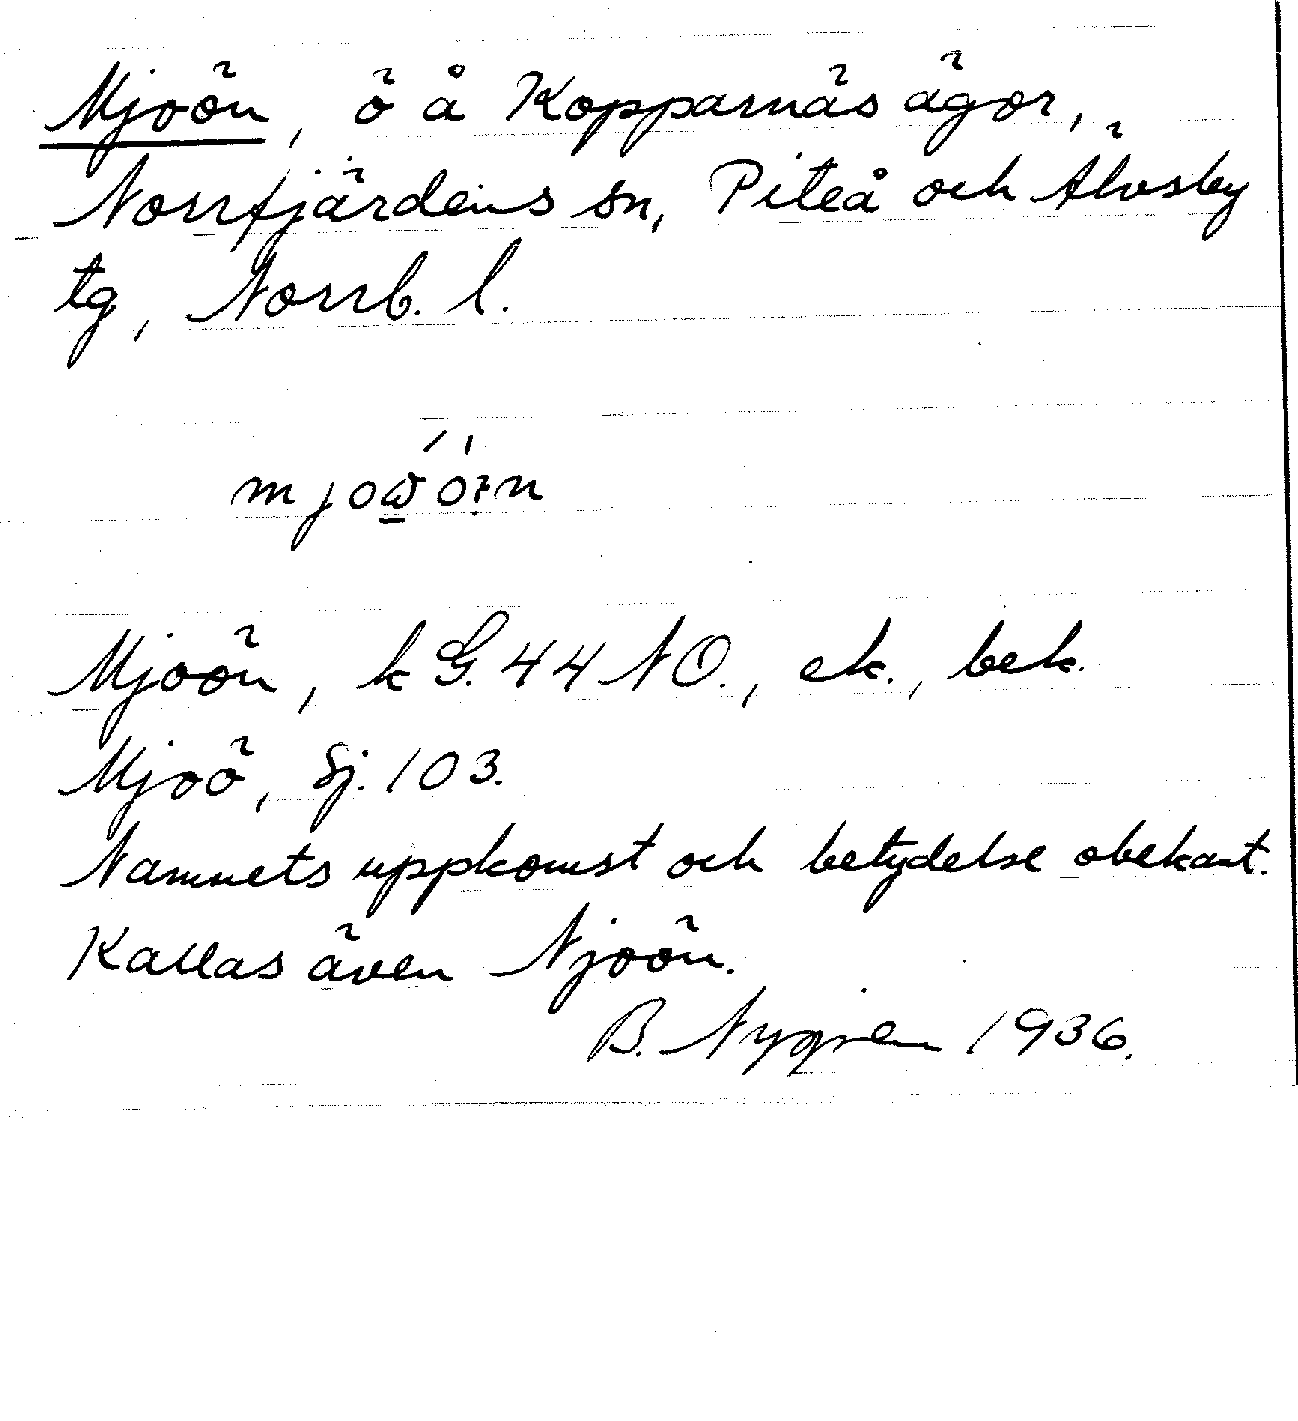 Mjoön, ö å Kopparnäs ägor,
Norrfjärdens sn, Piteå och Älvsby
tg, Norrb. l.
Mjoön, kG. 44 NO., ek., bek.
Mjoö, Sj. 103.
Namnets uppkomst och betydelse obekant.
Kallas även Njoön.
B. Nygren 1936.